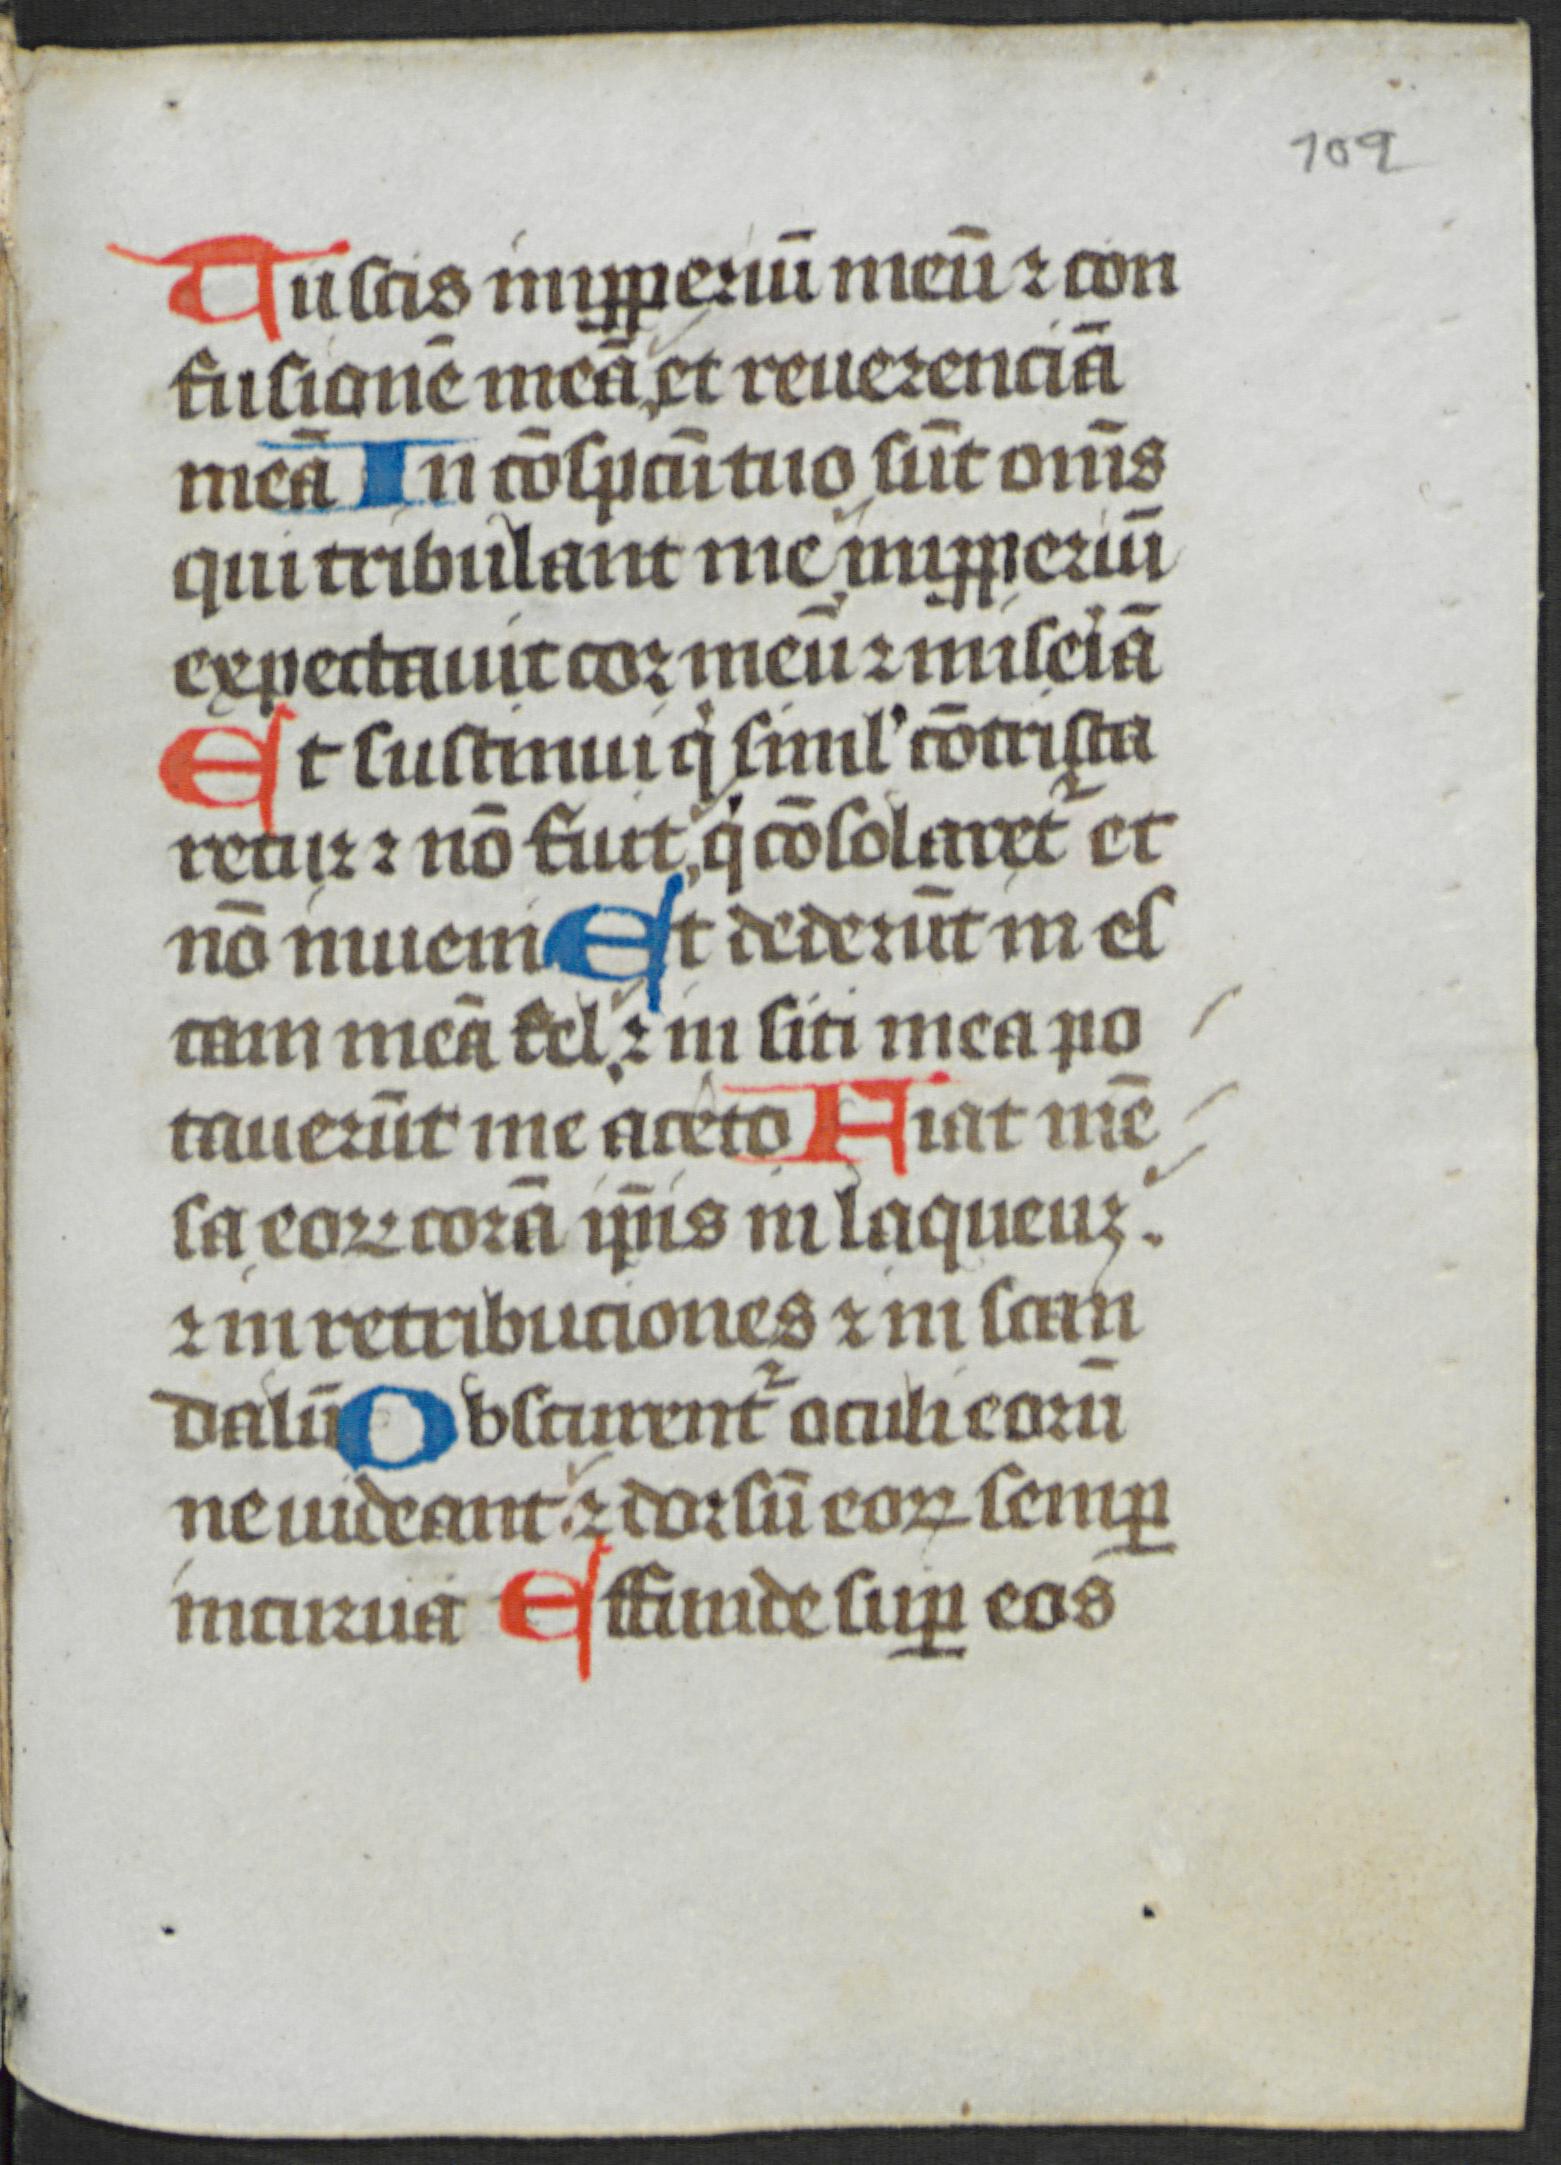 109
Tu scis inpꝑperiū meū ⁊ con
fusionē meā et reuerenciā
meā In cōspcūi tuo sūt om̄s
qui tribulant me inpꝑperiū
expectauit cor meū ⁊ misciā
Et sustinui qⁱ siml' cōtrista
retur ⁊ nō fuit qⁱ cōsolaret᷑ et
nō inueni Et dederūt in es
cam meā fel ⁊ in siti mea po
tauerūt me aceto Fiat mē
sa eoꝝ corā ip̄is in laqueuz.
⁊ in retribuciones ⁊ in scan
dalū Obscurent᷑ oculi eorū
ne uideant ⁊ dorsū eoꝝ semꝑ
incurua Effunde suꝑ eos